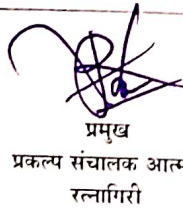 प्रमुख
प्रकल्प संचालक आत्म
रत्नागिरी